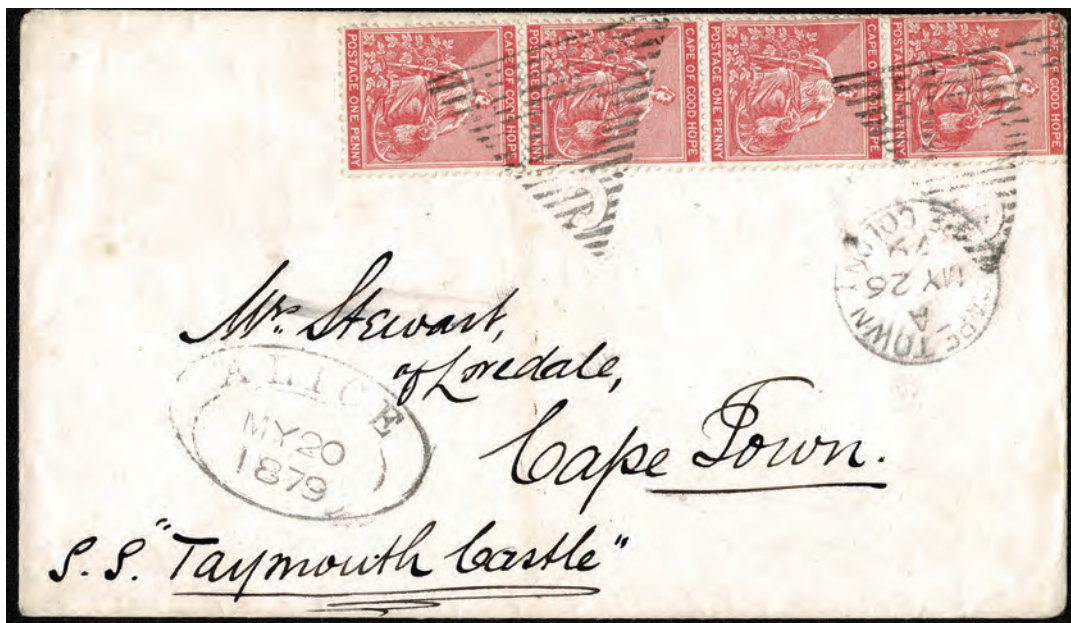 CAPE OF GOOD HOPE
POSTAGE ONE PENNY
CAPE OF GOOD HOPE
POSTAGE ONE PENNY
CAPE OF GOOD HOPE
POSTAGE ONE PENNY
CAPE OF GOOD HOPE
POSTAGE ONE PENNY
CAPE TOWN
A
MY 26
79
COLONY
Mrs. Stewart,
of Lovedale,
Cape Town.
ALICE
MY 20
1879
S.S. "Taymouth Castle"